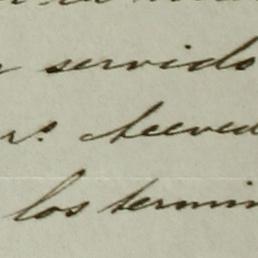 servido
Aceved
los termin